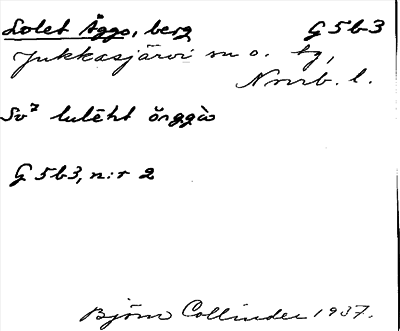 Lolet Åggo, berg G5b3
Jukkasjärvi sn o. tg,
Nrrb. l.
Sv⁷ lulēht
G5b3, n:r 2
Björn Collinder 1937.